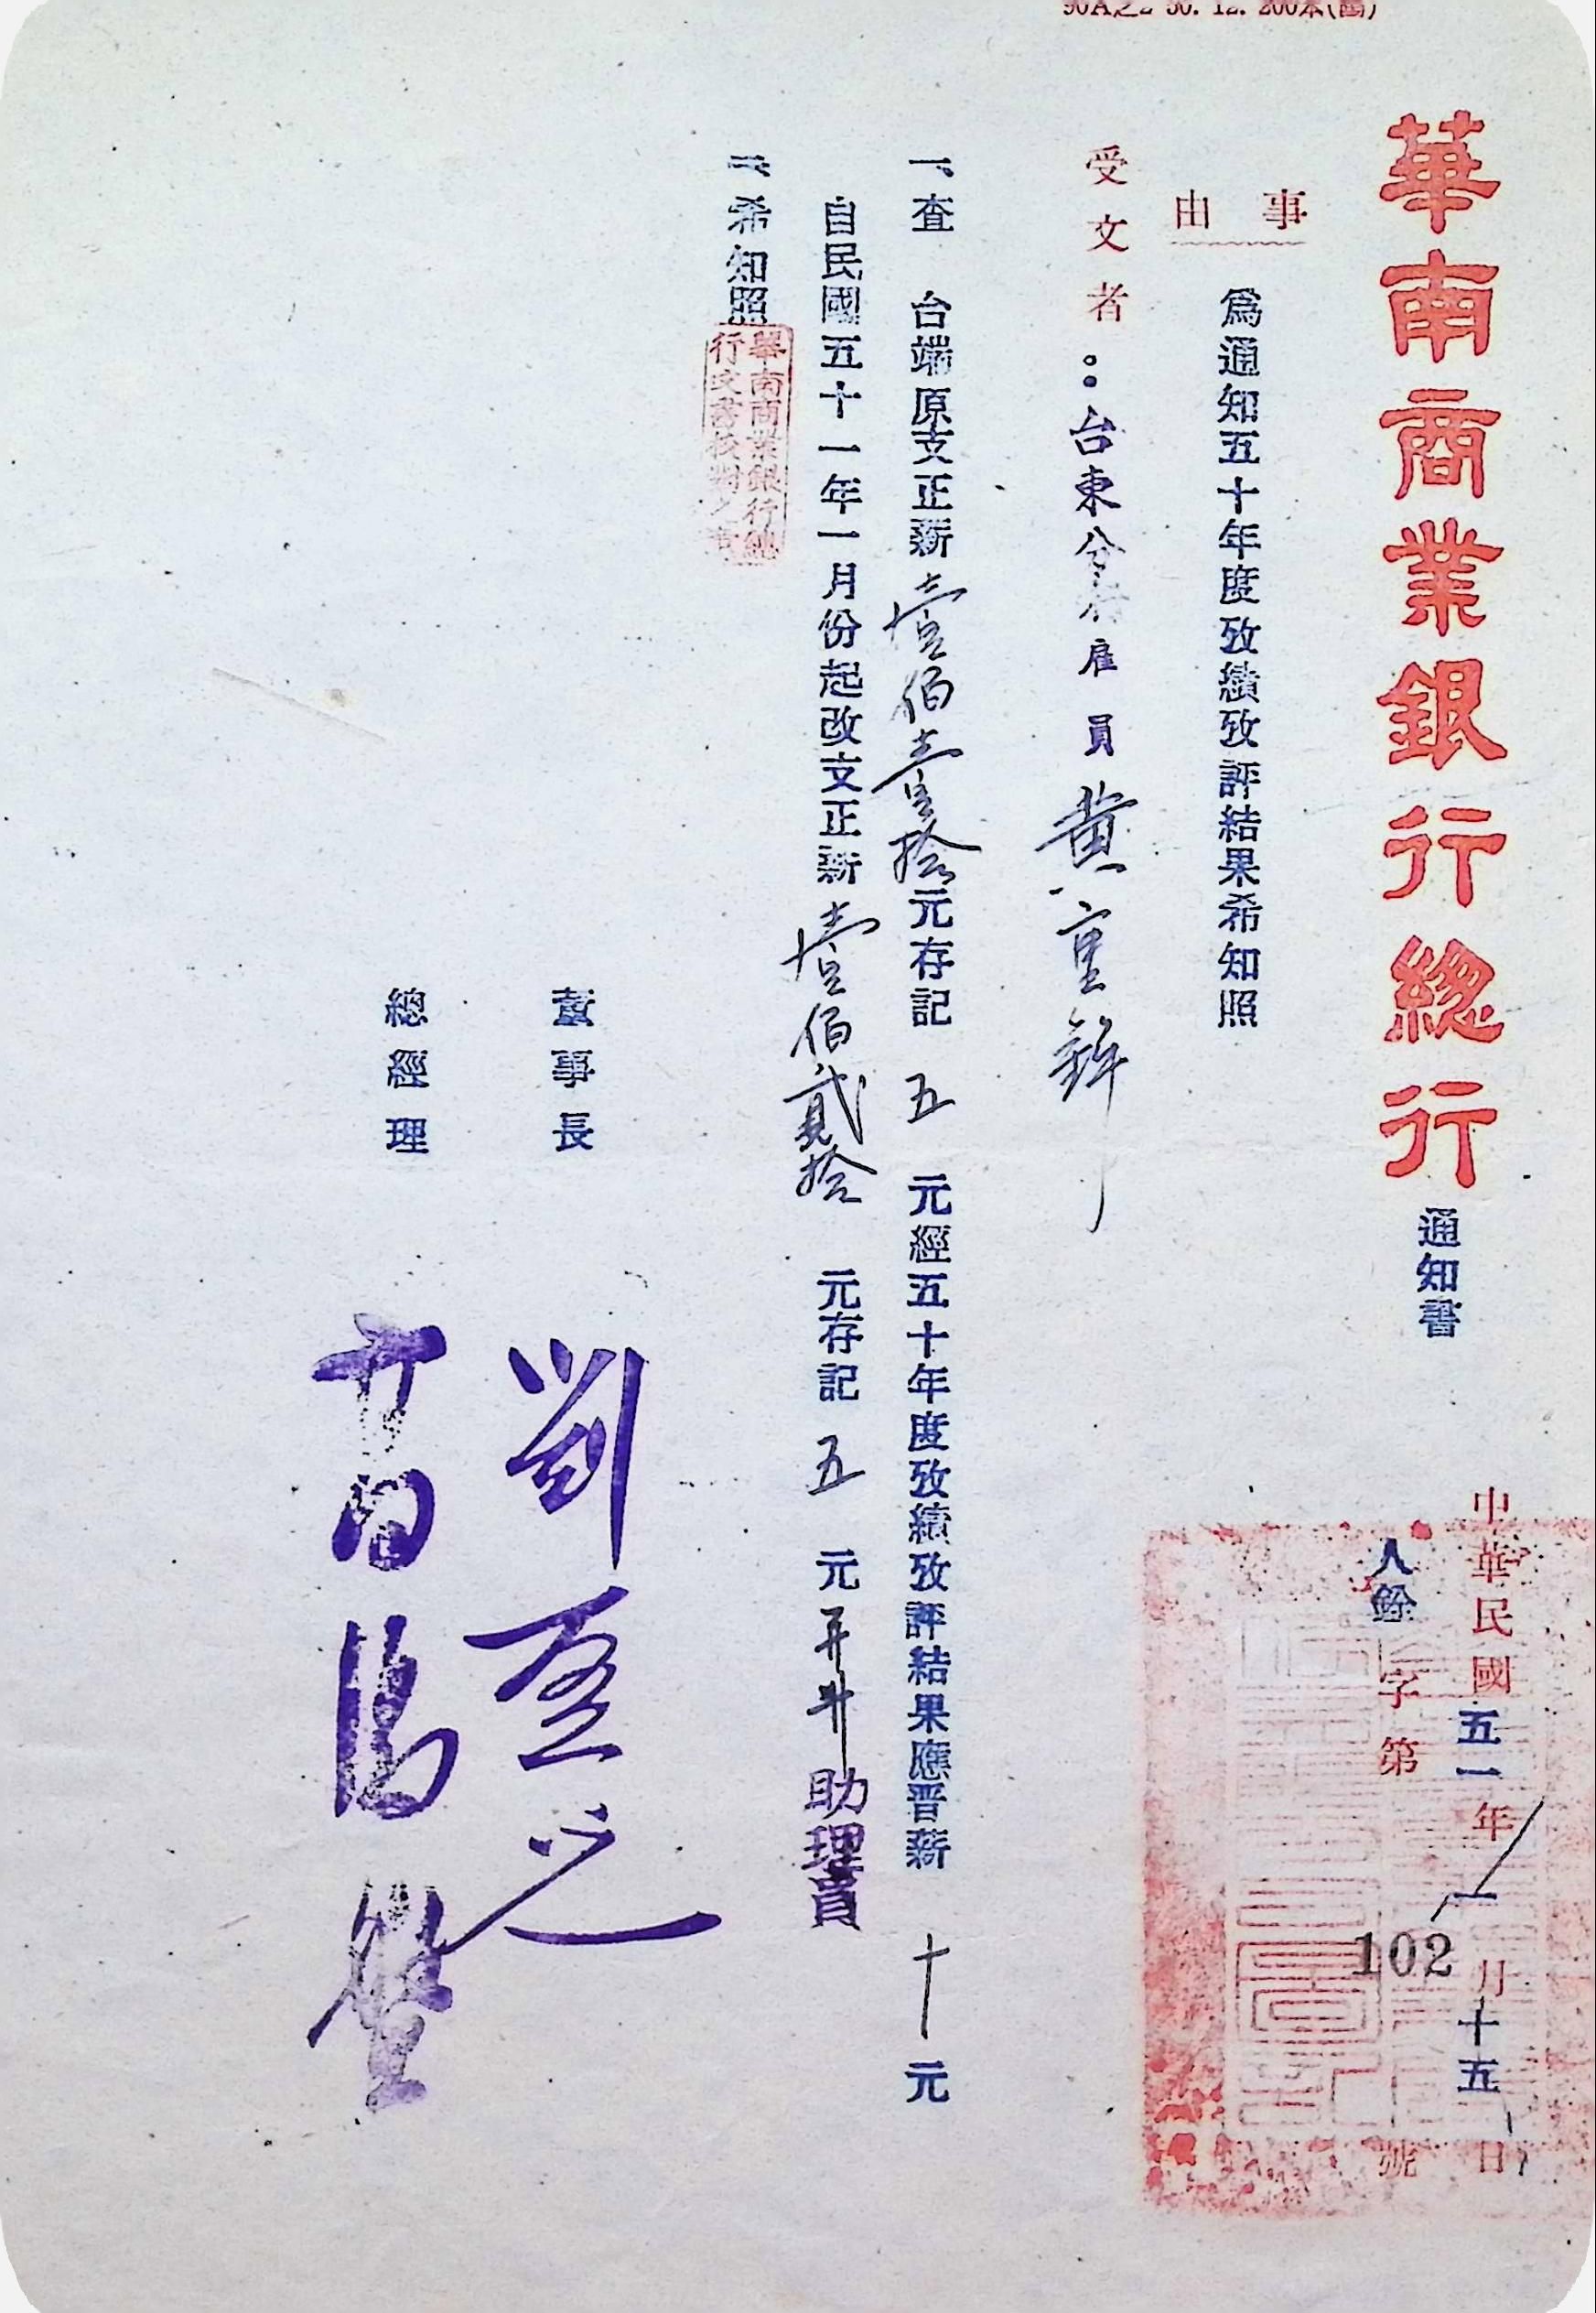 華南商業銀行總行通知書
中華民國五一年一月十五日
人銓字第102號
事由
為通知五十年度攷績攷評結果希知照
受文者：台東分行雇員黃重鉾
一、查 台端原支正薪壹佰壹拾元存記五元經五十年度攷績攷評結果應晉薪十元
自民國五十一年一月份起改支正薪壹佰貳拾元存記五元並升助理員
二、希知照
華南商業銀行總
行文書校對之章
董事長 劉啓光
總經理 高湯盤